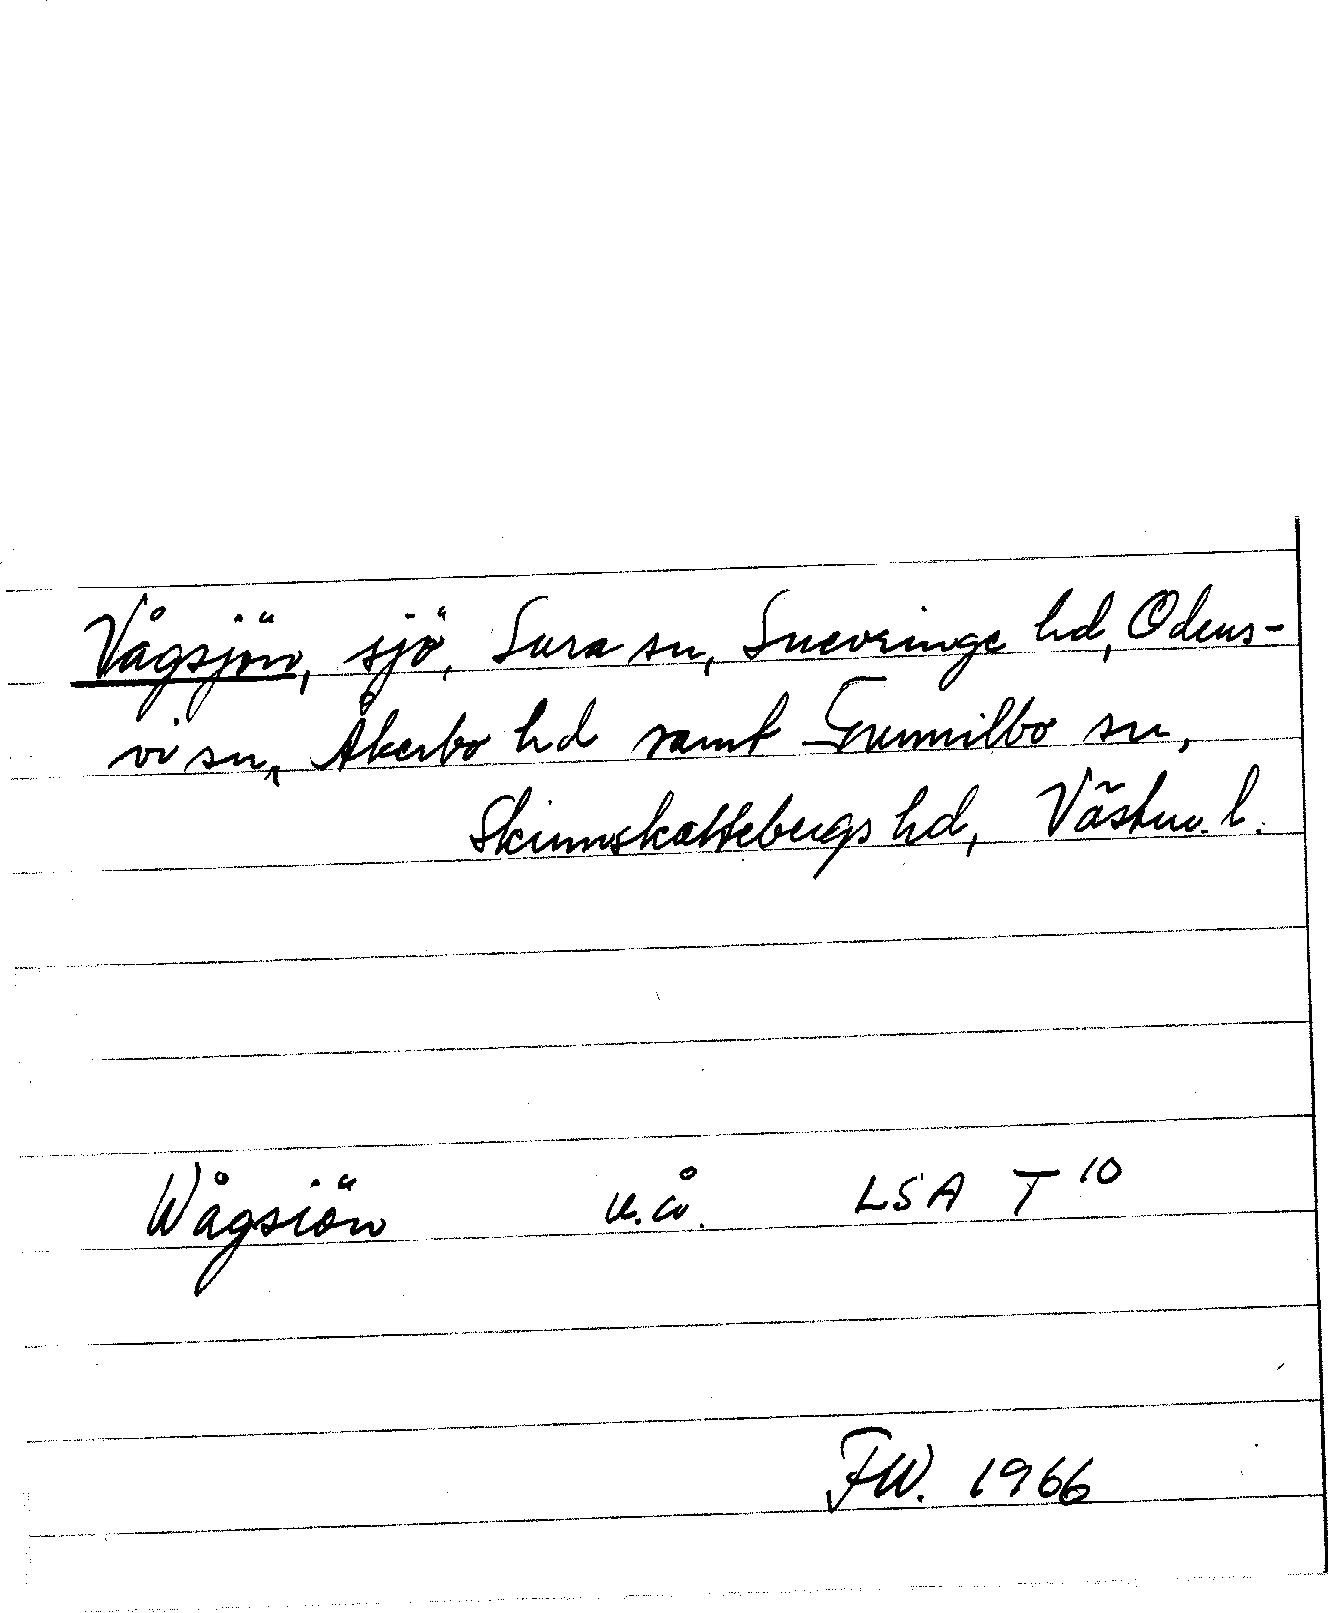 Vågsjön, sjö, Sura sn, Snevringe hd, Odens-
vi sn, Åkerbo hd samt Gunnilbo sn,
Skinnskattebergs hd, Västm. l.
Wågsiön u.å. LSA T 10
FW. 1966